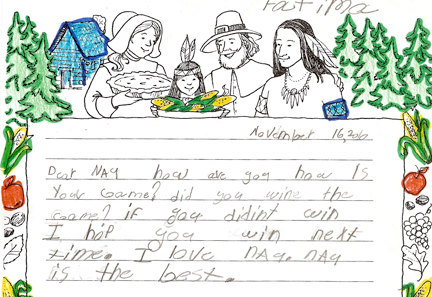 Fatima
November 16,200
Dear NAq how are you how Is
Your Game? did you wine the
Game? if you didint win
I hip you win next
time. I love nAq. nAq
is the best.